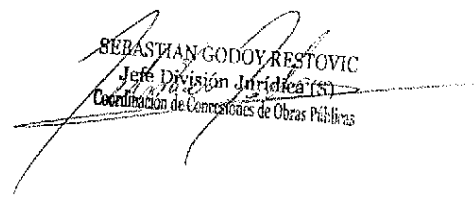 SEBASTIAN GODOY RESTOVIC
Jefe División Jurídica (S)
Coordinación de Concesiones de Obras Públicas